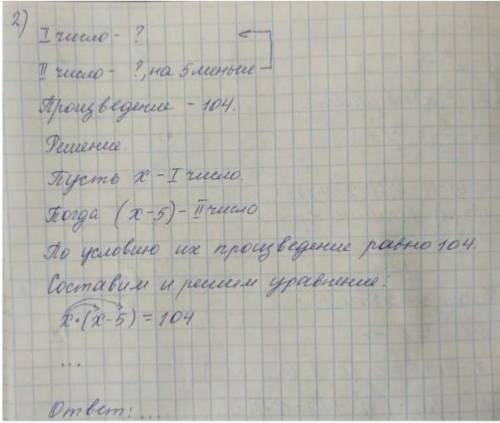 2)
I число - ?
II число - ?, на 5 меньше
Произведение - 104.
Решение.
Пусть x - I число.
Тогда (x-5) - II число
По условию их произведение равно 104.
Составим и решим уравнение:
x·(x-5) = 104
...
Ответ: ...